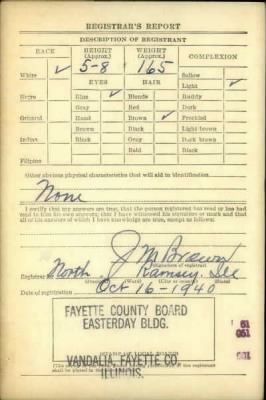 REGISTRAR'S REPORT
DESCRIPTION OF REGISTRANT
RACE HEIGHT (Approx.) WEIGHT (Approx.) COMPLEXION
White ✓ 5-8 165 Sallow
EYES HAIR Light ✓
Negro Blue ✓ Blonde Ruddy
Gray Red Dark
Oriental Hazel Brown ✓ Freckled
Brown Black Light brown
Indian Black Gray Dark brown
Bald Black
Filipino
Other obvious physical characteristics that will aid in identification
None
I certify that my answers are true; that the person registered has read or has had
read to him his own answers; that I have witnessed his signature or mark and that
all of his answers of which I have knowledge are true, except as follows:
J M Brown
Registrar for North Ramsey Ill
Date of registration Oct 16-1940
FAYETTE COUNTY BOARD
EASTERDAY BLDG.
VANDALIA, FAYETTE CO.
ILLINOIS.